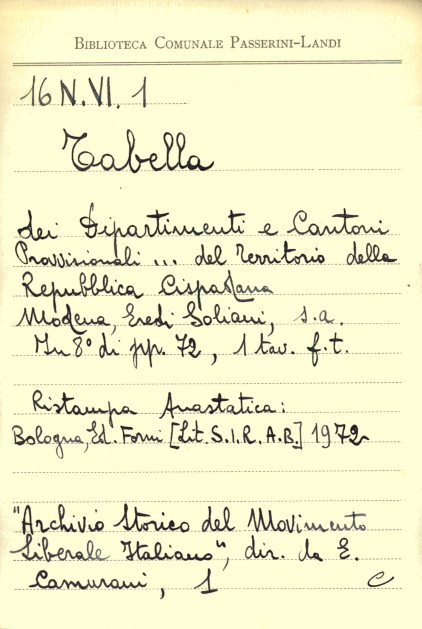 BIBLIOTECA COMUNALE PASSERINI-LANDI
16 N.VI. 1
Tabella
dei Dipartimenti e Cantoni
Provvisionali ... del Territorio della
Repubblica Cispadana
Modena, Eredi Soliani, s.a.
In 8° di pp. 72, 1 tav. f.t.
Ristampa Anastatica:
Bologna, Ed. Forni [Lit. S.I.R.A.B.] 1972
"Archivio Storico del Movimento
Liberale Italiano", dir. da E.
Camurani, 1
C